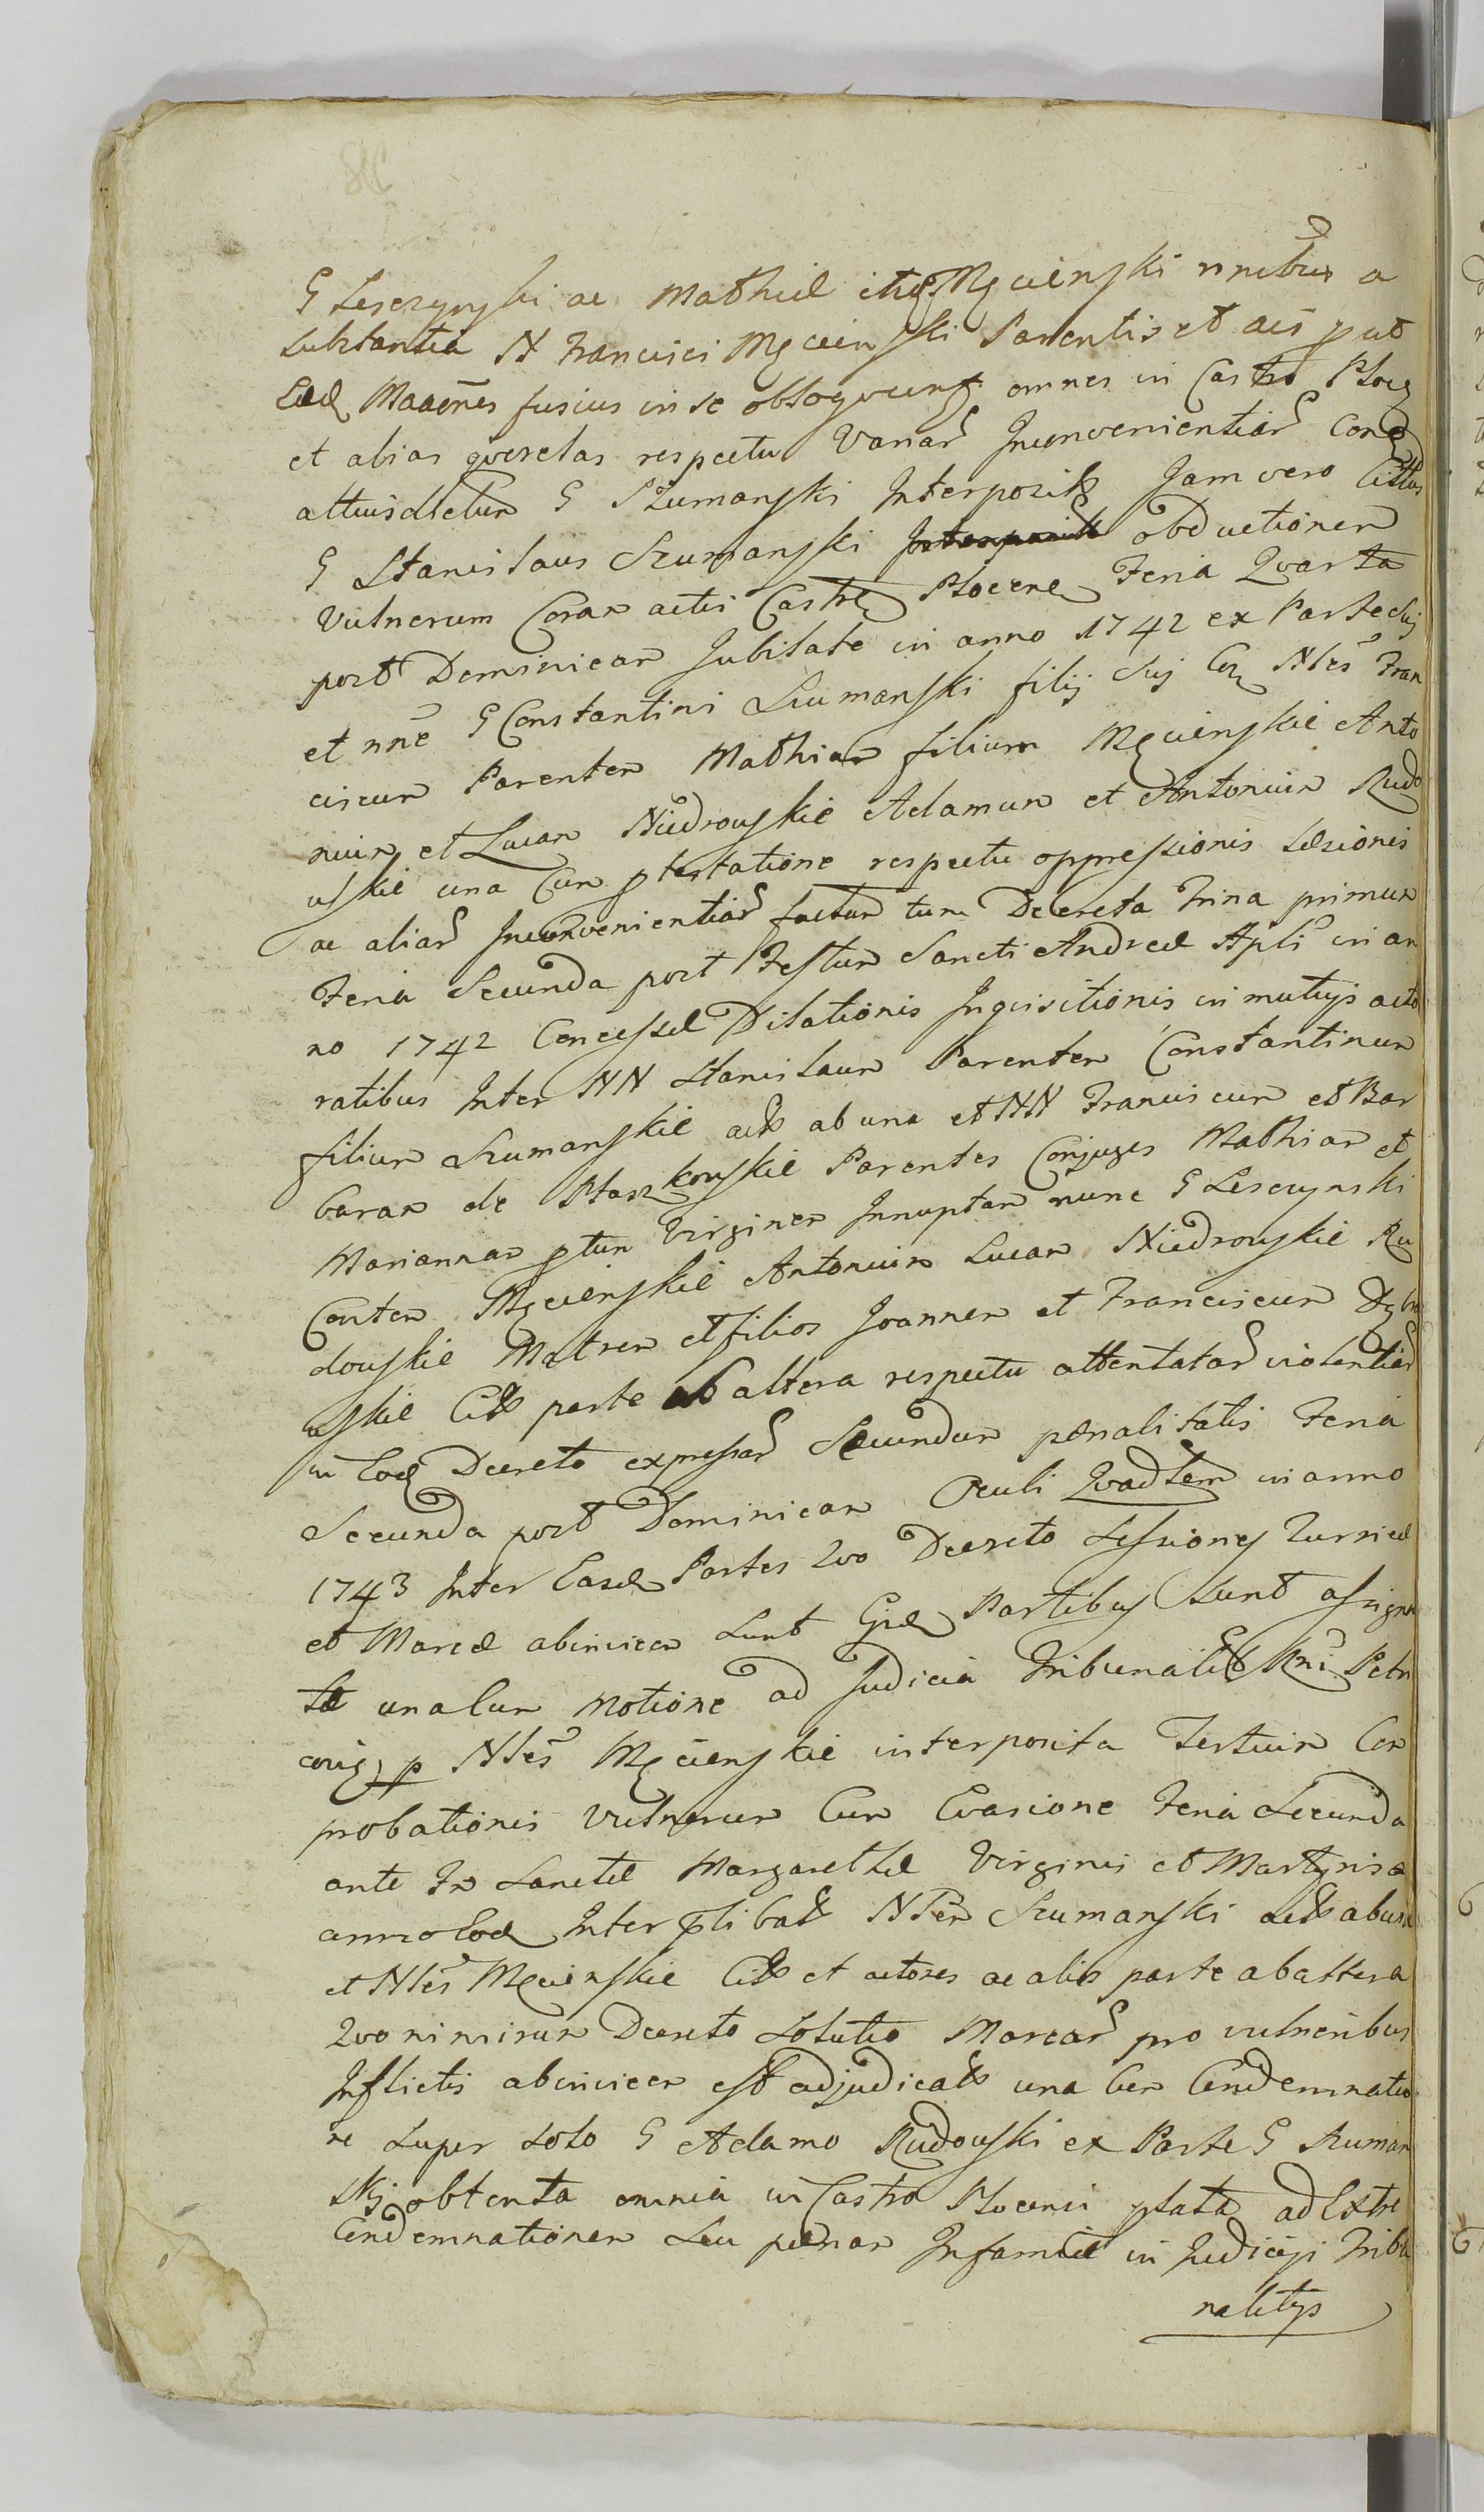 G Lesczynski ac Mathiæ itid Męcienski nnibus a
substantia N Francisci Męcienski Parentis et aes put
Eæd Maaōnes fusius in se obloqvunt omnes in Castro Ploc
et alias qverelas respectu Variar Inconvenientiar Con
G Szumanski Interposit Jam vero Citatus
G Stanislaus Szumanski obductionem
Vulnerum Coram actis Castr Plocen Feria Qvarta
post Dominicam Jubilate in anno 1742 ex Parte Sui
et nne G Constantini Szumanski filij Sui Con Nles Fran
ciscum Parentem Mathiam filium Męcienskie Anto
nium et Lucam Niedrowskie Adamum et Antonium Rudo
wskie una Cum ptestatione respectu oppressionis læsionis
ac aliar Inconvenientiar factar tum Decreta Trina primum
Feria Secunda post Festum Sancti Andreæ Apli in an
no 1742 Concessæ Dilationis Inqvisitionis in mutuis acto
ratibus Inter NN Stanislaum Parentem Constantinum
filium Szumanskie act ab una et NN Franciscum et Bar
baram de Staszkowskie Parentes Conjuges Mathiam et
Mariannam ptun Virginem Innuptam nunc G Lesczynski
Conten Męcienskie Antonium Lucam Niedrowskie Ru
dowskie Matrem et filios Joannem et Franciscum Dębro
wskie Cit parte ab altera respectu attentatar violentiar
in Eod Decreto expressar Secundum pœnalitatis Feria
Secunda post Dominicam Oculi Qvadlem in anno
1743 Inter Easd Partes Qvo Decreto Sessiones Turris
et Marcæ abinvicem Sunt Eisd Partibus Sunt assigna
tæ una Cum Motione ad Judicia Tribunalit Rni Petri
covien p Nles Męcienskie interposita Tertium Com
probationis Vulnerum Cum Evasione Feria Secunda
ante Fm Sanctæ Margarethæ Virginis et Martyris a
anno Eod Inter plibat Nlem Szumanski act ab una
et Nles Męcienskie Cit et actores ac alios parte ab altera
Qvo nimirum Decreto Solutio Marcar pro vulneribus
Inflictis abinvicem est adjudicat una Cum Condemnatio
ne super solo G Adamo Rudowski ex Parte G Szuman
skj obtenta omnia in Castro Plocensi plata ad Extre
Condemnationem Seu pœnam Infamiæ in Judicijs Tribu
nalitijs